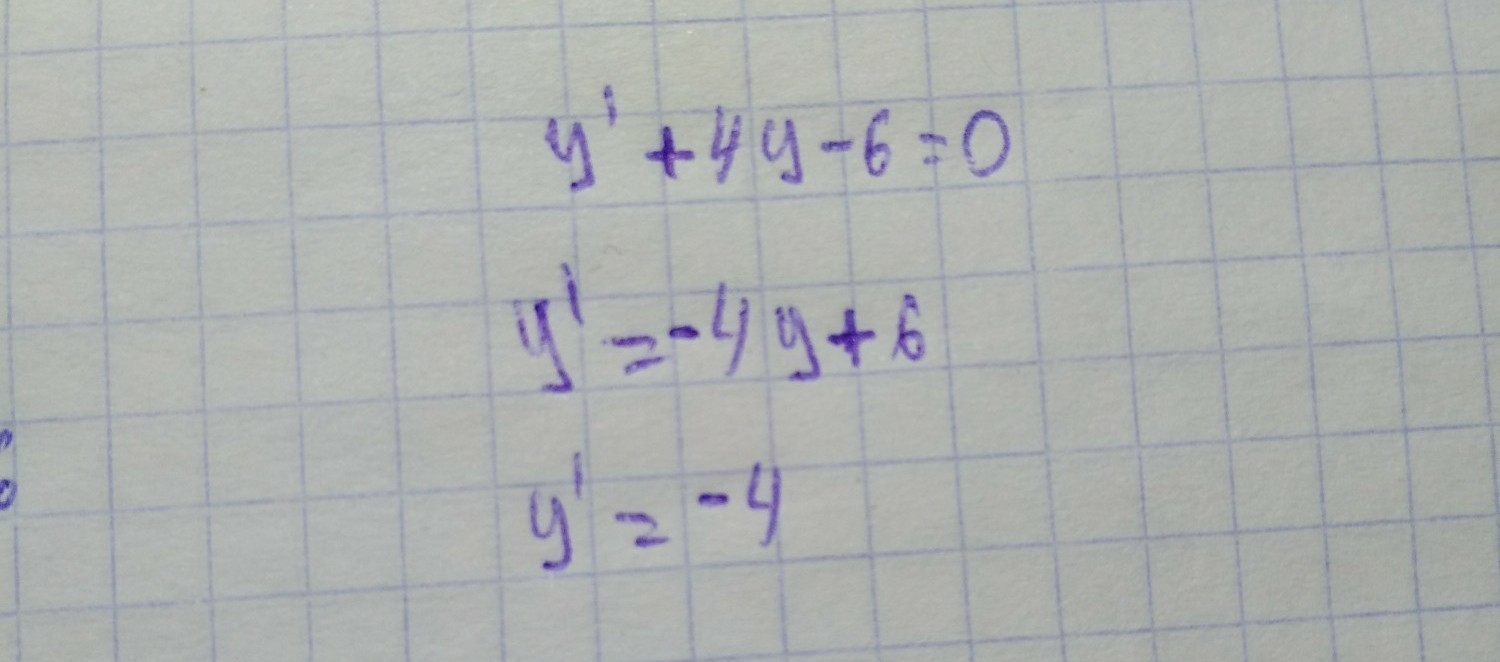 y' + 4y - 6 = 0
y' = -4y + 6
y' = -4